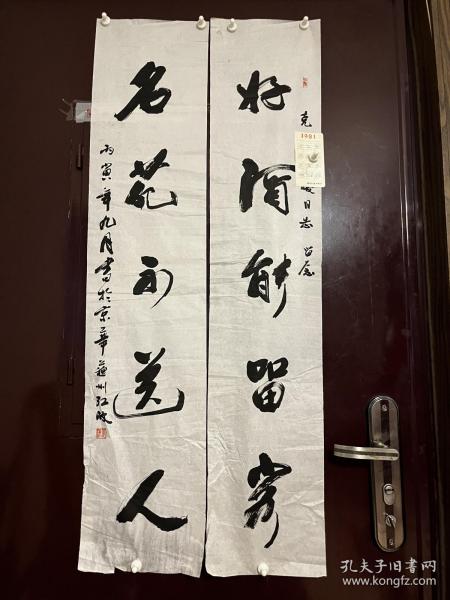 好酒能留客
克
同志
留念
名花可送人
丙寅年九月书于京华苏州江
1981
孔夫子旧书网
www.kongfz.com